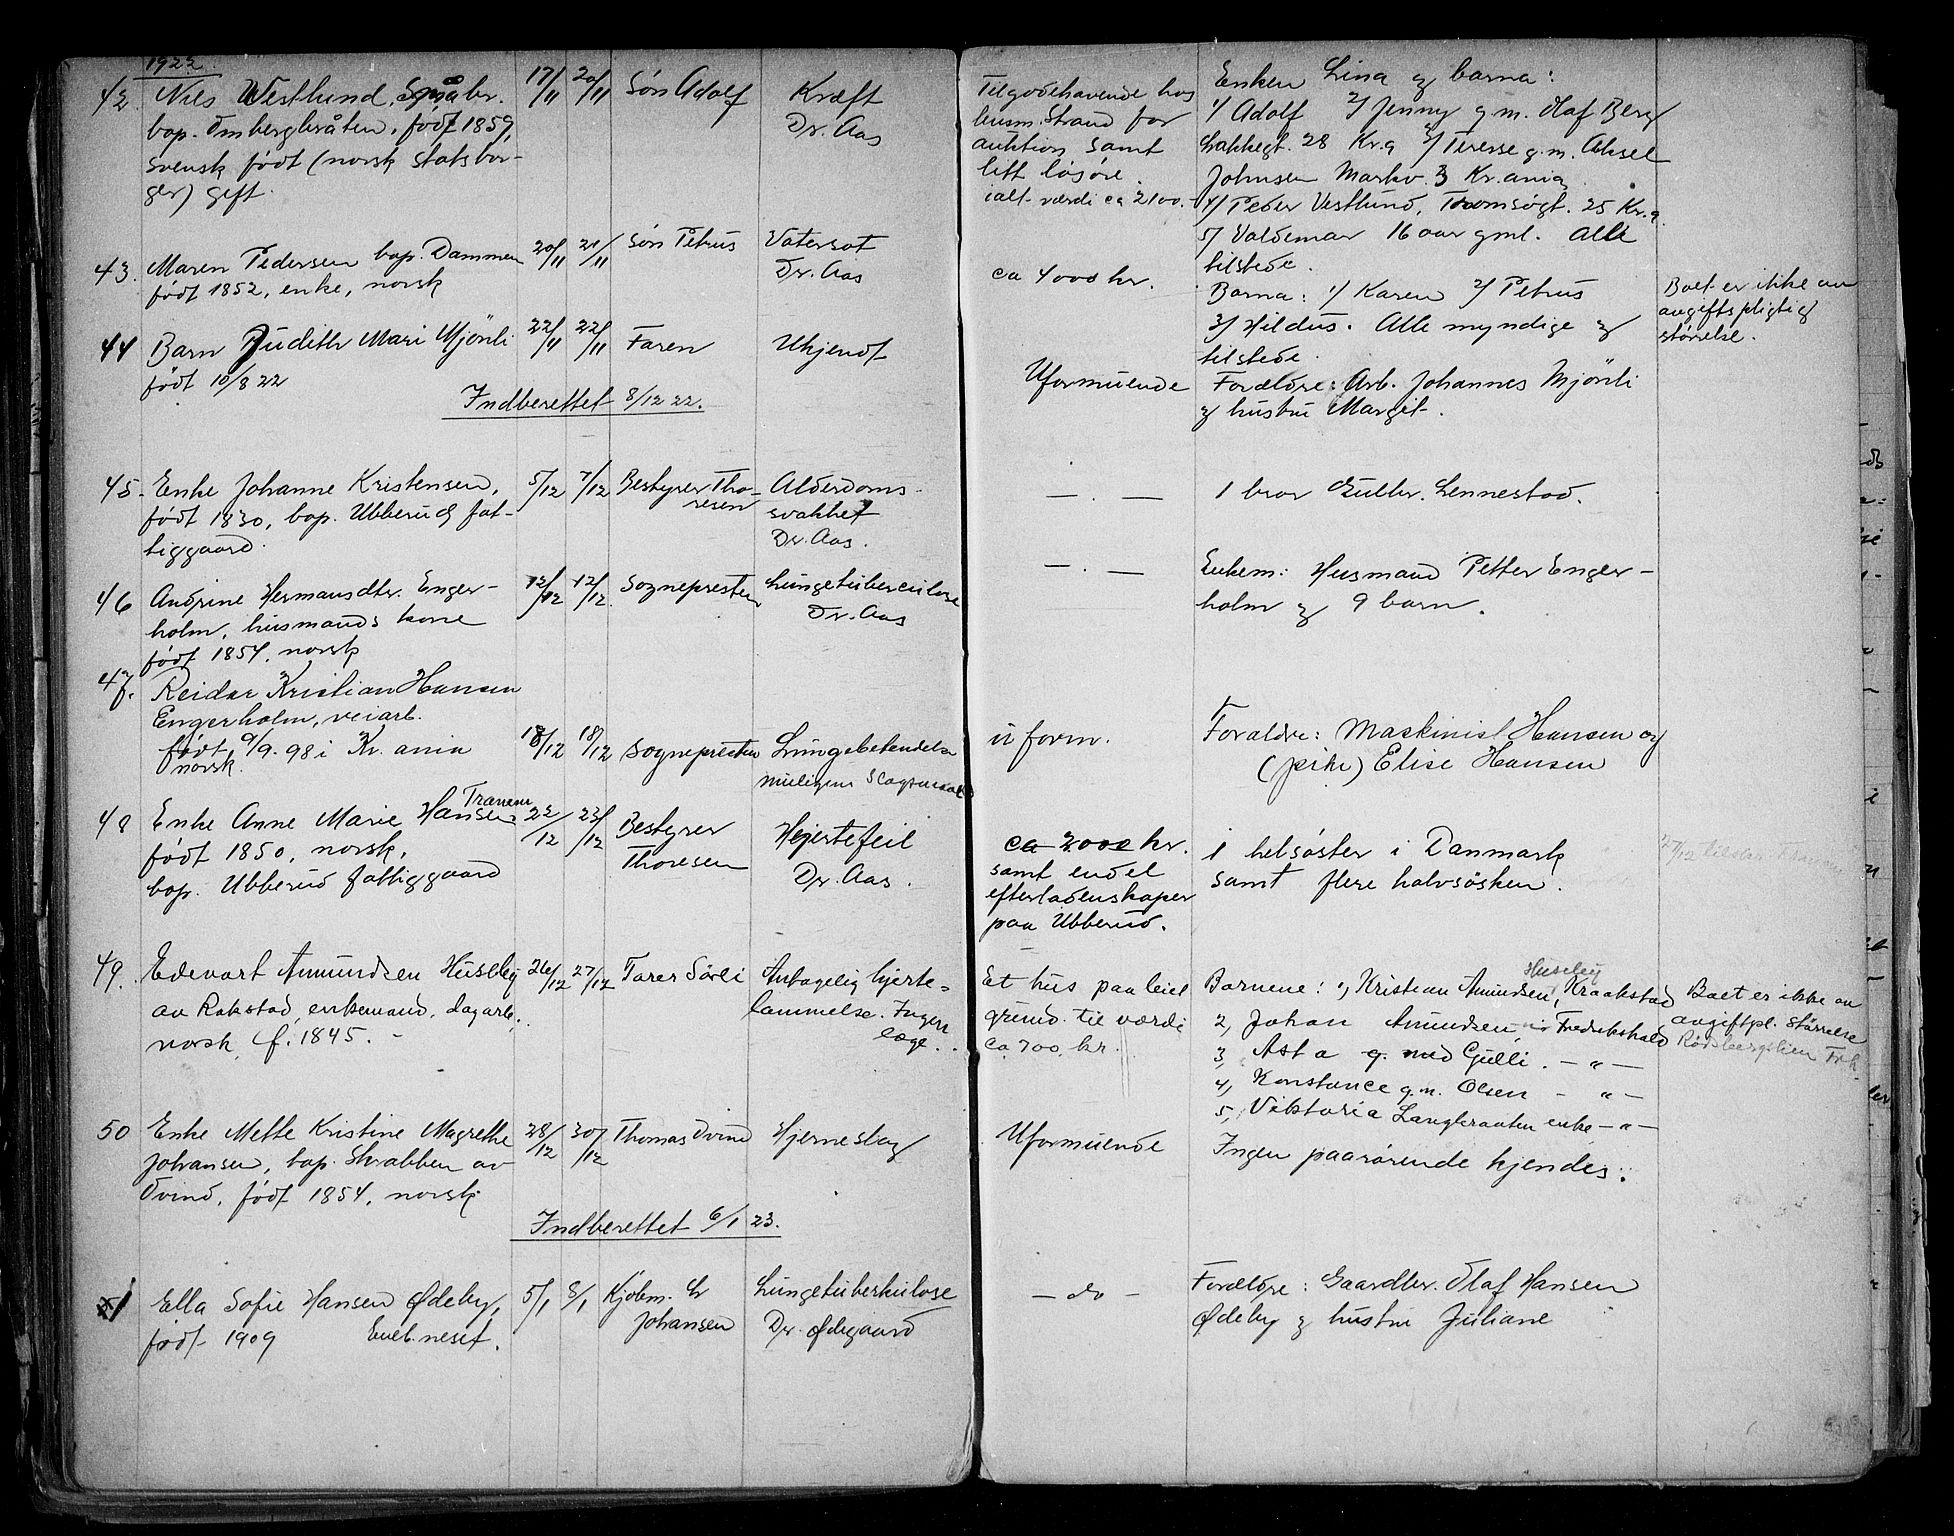 1922.
42. Nils Westlund, småbr. 17/11 20/11 Søn Adolf Kræft
bop. Ombergbråten, født 1859, Dr. Aas
svensk født (norsk statsbor-
ger) gift.
Tilgodehavende hos
husm. Strand for
auktion samt
litt løsøre.
ialt værdi ca 2100.-
Enken Lina og barna:
1/ Adolf 2/ Jenny g.m. Olaf Berg
Lakkegt. 28 Kr.a 3/ Terese g.m. Aksel
Johnsen Markv. 3 Kr.ania
4/ Peder Vestlund, Tromsøgt. 25 Kr.a
5/ Valdemar 16 aar gml. Alle
tilstede.
43. Maren Pedersen bop. Dammen 20/11 21/11 Søn Petrus Vatersot
født 1852, enke, norsk Dr. Aas
ca 4000 kr.
Barna: 1/ Karen 2/ Petrus
3/ Hildus. Alle myndige og
tilstede.
Boet er ikke av
avgiftspligtig
størrelse.
44 Barn Judith Mari Mjönli 22/11 22/11 Faren Ukjendt
født 10/8 22
Uformuende
Forældre: Arb. Johannes Mjönli
og hustru Margit.
Indberettet 8/12 22.
45. Enke Johanne Kristensen, 5/12 7/12 Bestyrer Tho-
resen Alderdoms-
født 1830, bop. Ubberud fat- svakhet
tiggaard. Dr. Aas.
— . — 1 bror Gulbr. Lennestad.
46 Andrine Hermansdtr. Enger- 12/12 12/12. Sognepresten Lungetuberculose
holm, husmands kone Dr. Aas
født 1854, norsk
— . — Enkem: Husmand Petter Enger-
holm og 9 barn.
47. Reidar Kristian Hansen
Engerholm, veiarb.
født 9/9. 98 i Kr. ania 18/12 18/12 Sognepresten Lungebetendelse
norsk. muligens
uform.
Foraldre: Maskinist Hansen og
(pike) Elise Hansen
48 Enke Anne Marie Hansen 22/12 23/12 Bestyrer
Thoresen Hjertefeil
født 1850, norsk, Dr. Aas.
bop. Ubberud fattiggaard
ca 2000 kr.
samt endel
efterladenskaper
paa Ubberud.
1 helsøster i Danmark
samt flere halvsøsken.
49. Edevart Amundsen Huseby 26/12 27/12 Tarer Sörli Antagelig hjerte-
av Rakstad, enkemand, dagarb., lammelse. Ingen
norsk, f. 1845. - læge.
Et hus paa leiet
grund til værdi
ca 700 kr.
Huseby
Barnene: 1, Kristian Amundsen, Kraakstad
2, Johan Amundsen, Fredrikshald
3, Asta g. med Gulli. — " —
4, Konstance g.m. Olsen — " —
5, Viktoria Langbraaten enke — " —
Boet er ikke av
avgiftpl. størrelse
50 Enke Mette Kristine Magrethe 28/12 30/12 Thomas Ovind Hjerneslag
Johansen, bop. Skrabben av
Ovind, født 1854, norsk.
Uformuende Ingen paarørende kjendes.
Indberettet 6/1 23.
1 Ella Sofie Hansen Ødeby, 5/1 8/1 Kjøbm. Chr Johansen Lungetuberkulose
født 1909 Eneb.neset. Dr. Ødegaard
— do —
Forældre: Gaardbr. Olaf Hansen
Ødeby og hustru Juliane